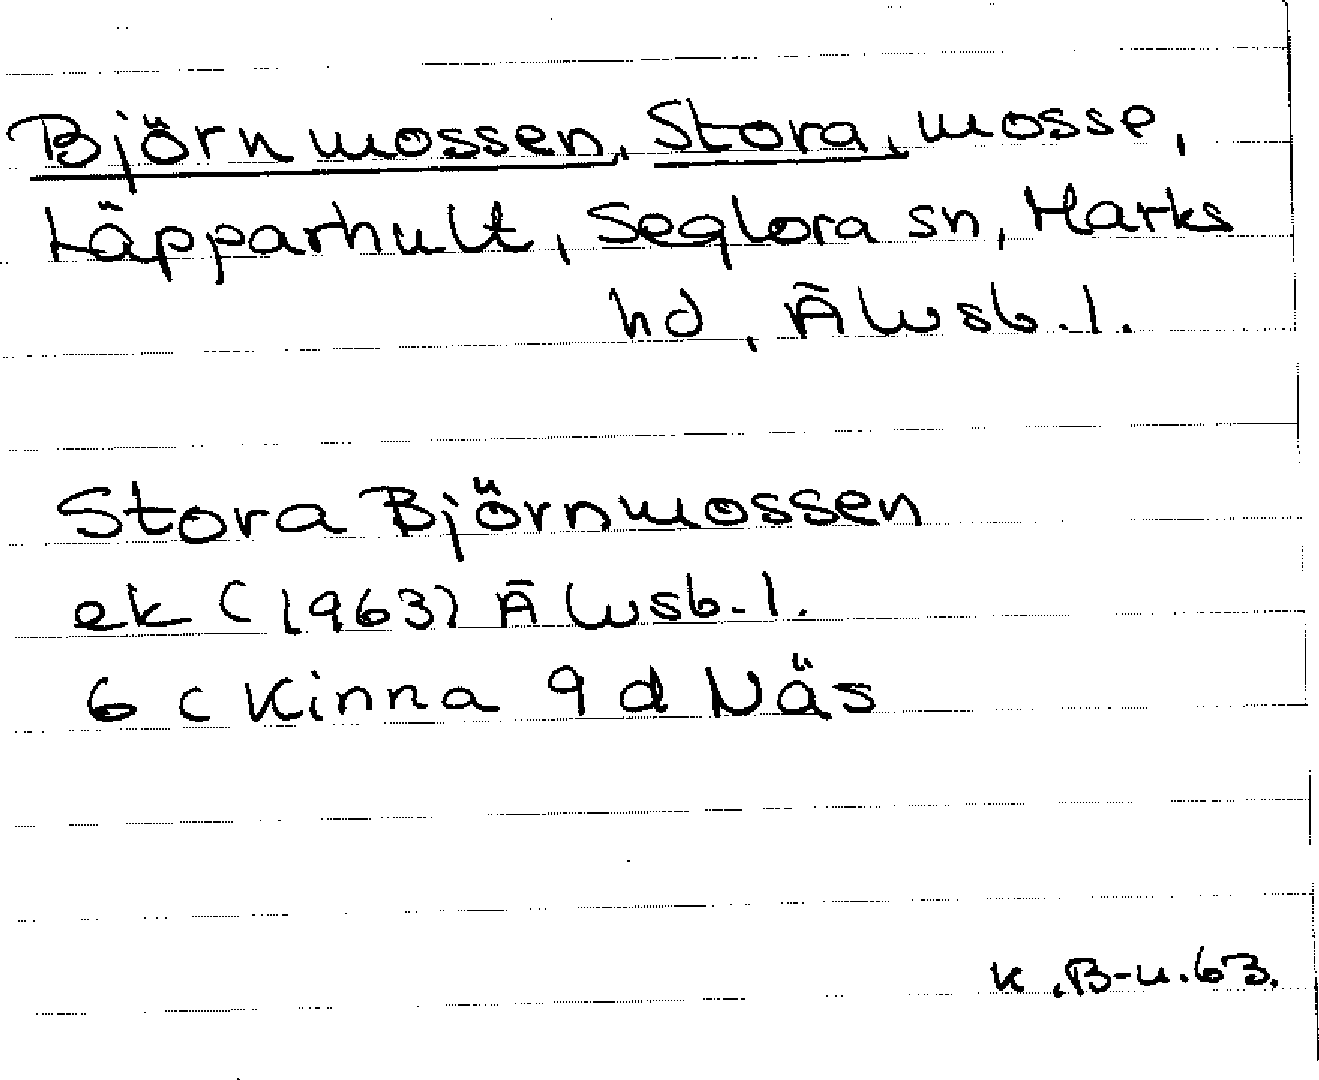 Björnmossen, Stora, mosse,
Läpparhult, Seglora sn, Marks
hd, Älvsb. l.
Stora Björnmossen
ek (1963) Älvsb. l.
6 c Kinna 9 d Näs
K.B-n.63.